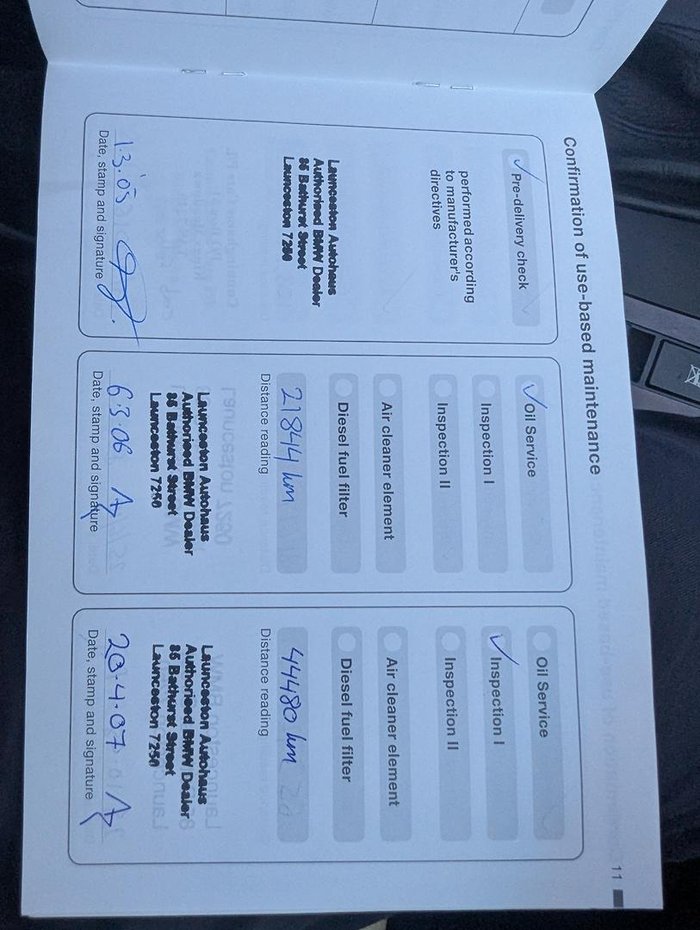 Confirmation of use-based maintenance
✓ Pre-delivery check
performed according
to manufacturer's
directives
Launceston Autohaus
Authorised BMW Dealer
85 Bathurst Street
Launceston 7250
1.3.05
Date, stamp and signature
✓ Oil Service
Inspection I
Inspection II
Air cleaner element
Diesel fuel filter
21844 km
Distance reading
Launceston Autohaus
Authorised BMW Dealer
85 Bathurst Street
Launceston 7250
6.3.06
Date, stamp and signature
Oil Service
✓ Inspection I
Inspection II
Air cleaner element
Diesel fuel filter
44480 km
Distance reading
Launceston Autohaus
Authorised BMW Dealer
85 Bathurst Street
Launceston 7250
20.4.07
Date, stamp and signature
11